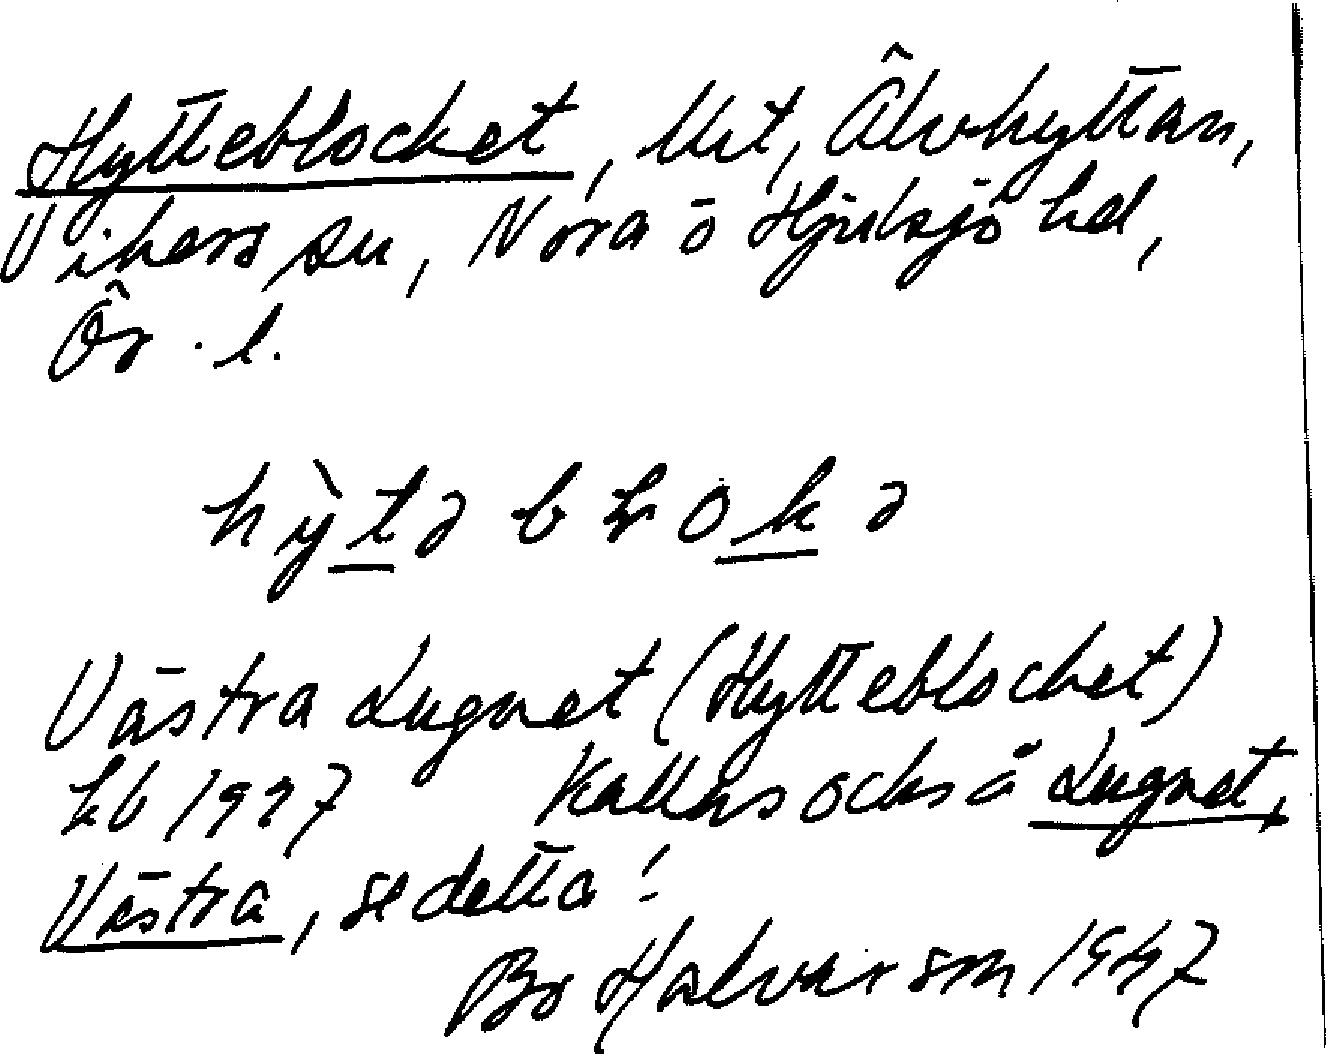 Hytteblocket, Urt, Älvhyttan,
Vikers sn, Nora o Hjulsjö hd,
Ör. l.
hỳtə błokə
Västra Lugnet (Hytteblocket)
kb 1927 Kallas också Lugnet,
Västra, se detta!
Bo Halvarson 1947